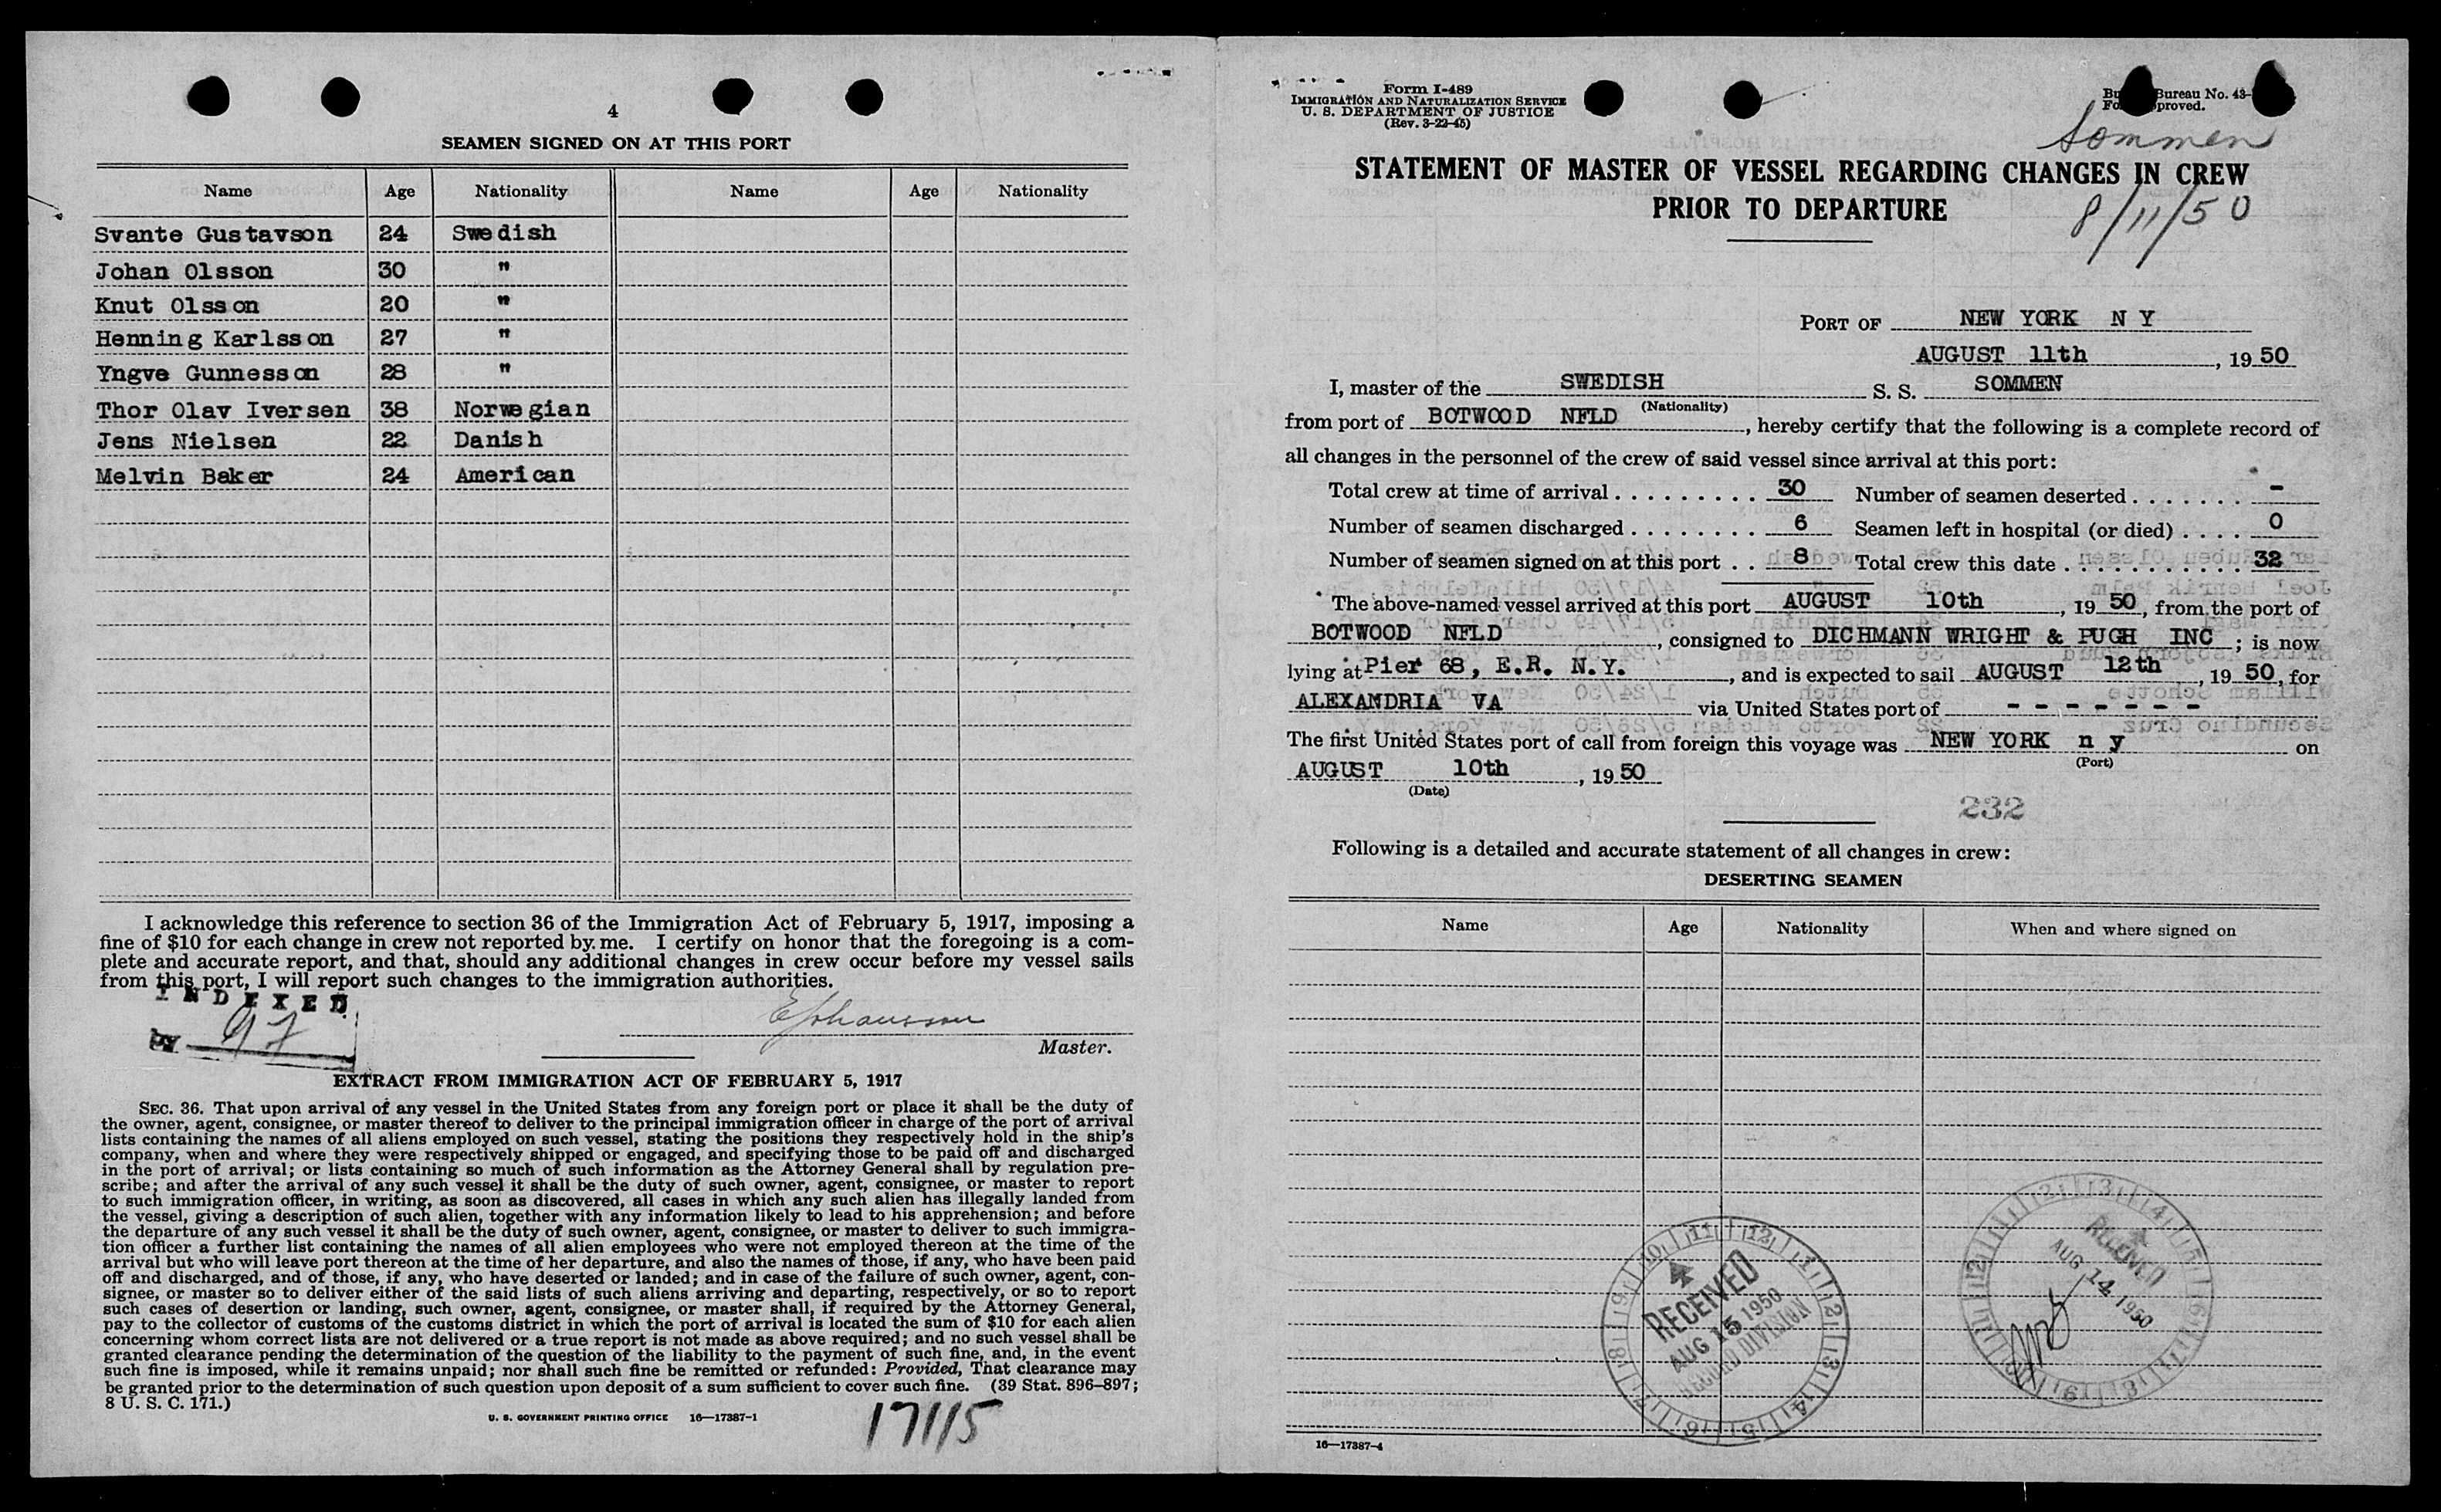 4
SEAMEN SIGNED ON AT THIS PORT
Name Age Nationality Name Age Nationality
Svante Gustavson 24 Swedish
Johan Olsson 30 "
Knut Olsson 20 "
Henning Karlsson 27 "
Yngve Gunnesson 28 "
Thor Olav Iversen 38 Norwegian
Jens Nielsen 22 Danish
Melvin Baker 24 American
I acknowledge this reference to section 36 of the Immigration Act of February 5, 1917, imposing a
fine of $10 for each change in crew not reported by me. I certify on honor that the foregoing is a com-
plete and accurate report, and that, should any additional changes in crew occur before my vessel sails
from this port, I will report such changes to the immigration authorities.
INDEXED
BY
EJohansson
Master.
EXTRACT FROM IMMIGRATION ACT OF FEBRUARY 5, 1917
SEC. 36. That upon arrival of any vessel in the United States from any foreign port or place it shall be the duty of
the owner, agent, consignee, or master thereof to deliver to the principal immigration officer in charge of the port of arrival
lists containing the names of all aliens employed on such vessel, stating the positions they respectively hold in the ship's
company, when and where they were respectively shipped or engaged, and specifying those to be paid off and discharged
in the port of arrival; or lists containing so much of such information as the Attorney General shall by regulation pre-
scribe; and after the arrival of any such vessel it shall be the duty of such owner, agent, consignee, or master to report
to such immigration officer, in writing, as soon as discovered, all cases in which any such alien has illegally landed from
the vessel, giving a description of such alien, together with any information likely to lead to his apprehension; and before
the departure of any such vessel it shall be the duty of such owner, agent, consignee, or master to deliver to such immigra-
tion officer a further list containing the names of all alien employees who were not employed thereon at the time of the
arrival but who will leave port thereon at the time of her departure, and also the names of those, if any, who have been paid
off and discharged, and of those, if any, who have deserted or landed; and in case of the failure of such owner, agent, con-
signee, or master so to deliver either of the said lists of such aliens arriving and departing, respectively, or so to report
such cases of desertion or landing, such owner, agent, consignee, or master shall, if required by the Attorney General,
pay to the collector of customs of the customs district in which the port of arrival is located the sum of $10 for each alien
concerning whom correct lists are not delivered or a true report is not made as above required; and no such vessel shall be
granted clearance pending the determination of the question of the liability to the payment of such fine, and, in the event
such fine is imposed, while it remains unpaid; nor shall such fine be remitted or refunded: Provided, That clearance may
be granted prior to the determination of such question upon deposit of a sum sufficient to cover such fine. (39 Stat. 896–897;
8 U. S. C. 171.)
U. S. GOVERNMENT PRINTING OFFICE 16—17387-1
17115
Form I-489
IMMIGRATION AND NATURALIZATION SERVICE
U. S. DEPARTMENT OF JUSTICE
(Rev. 3-22-45)
Bureau No. 43-
Sommen
STATEMENT OF MASTER OF VESSEL REGARDING CHANGES IN CREW
PRIOR TO DEPARTURE
8/11/50
PORT OF NEW YORK N Y
AUGUST 11th, 19 50
I, master of the SWEDISH S. S. SOMMEN
(Nationality)
from port of BOTWOOD NFLD, hereby certify that the following is a complete record of
all changes in the personnel of the crew of said vessel since arrival at this port:
Total crew at time of arrival . . . . . . . . . 30 Number of seamen deserted . . . . . . . -
Number of seamen discharged . . . . . . . . 6 Seamen left in hospital (or died) . . . . 0
Number of seamen signed on at this port . . 8 Total crew this date . . . . . . . . . . . 32
The above-named vessel arrived at this port AUGUST 10th, 19 50, from the port of
BOTWOOD NFLD, consigned to DICHMANN WRIGHT & PUGH INC; is now
lying at Pier 68, E.R. N.Y., and is expected to sail AUGUST 12th, 19 50, for
ALEXANDRIA VA via United States port of - - - - - - -
The first United States port of call from foreign this voyage was NEW YORK n y on
(Port)
AUGUST 10th, 19 50
(Date)
232
Following is a detailed and accurate statement of all changes in crew:
DESERTING SEAMEN
Name Age Nationality When and where signed on
RECEIVED
AUG 15 1950
RECORD DIVISION
RECEIVED
AUG 14 1950
16—17387-4